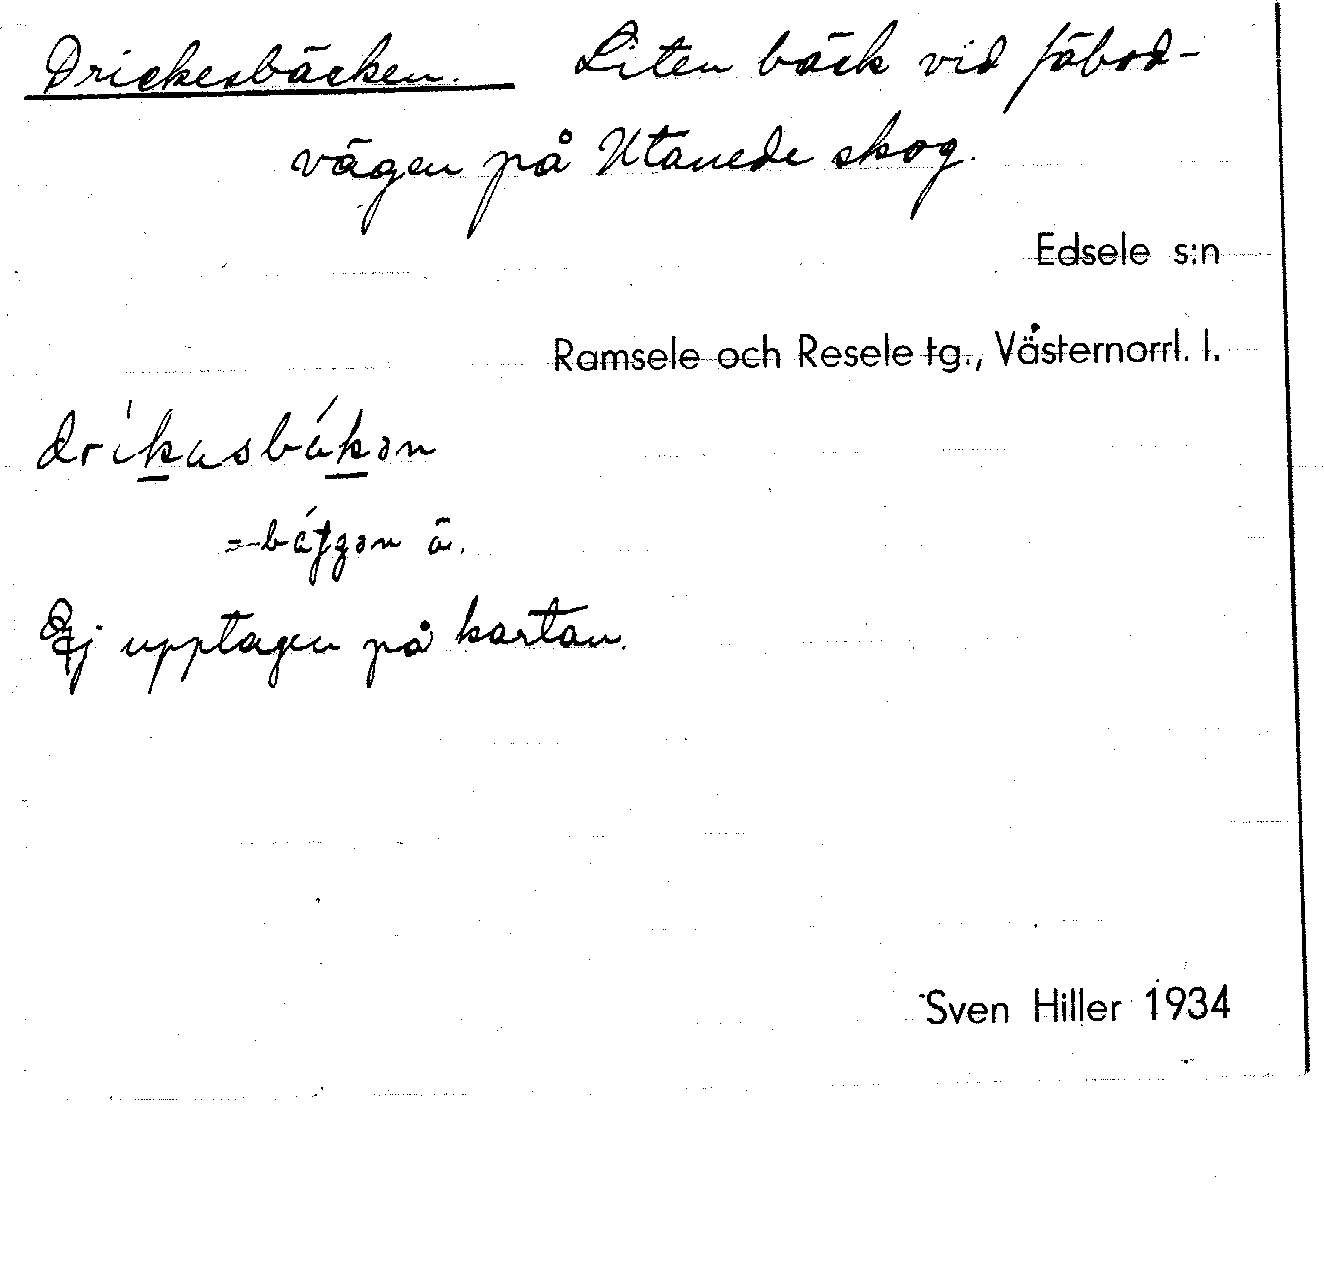 Drickesbäcken. Liten bäck vid fäbod-
vägen på Utanede skog.
Edsele s:n
Ramsele och Resele tg., Västernorrl. l.
drikasbákən
ä.
Ej upptagen på kartan.
Sven Hiller 1934